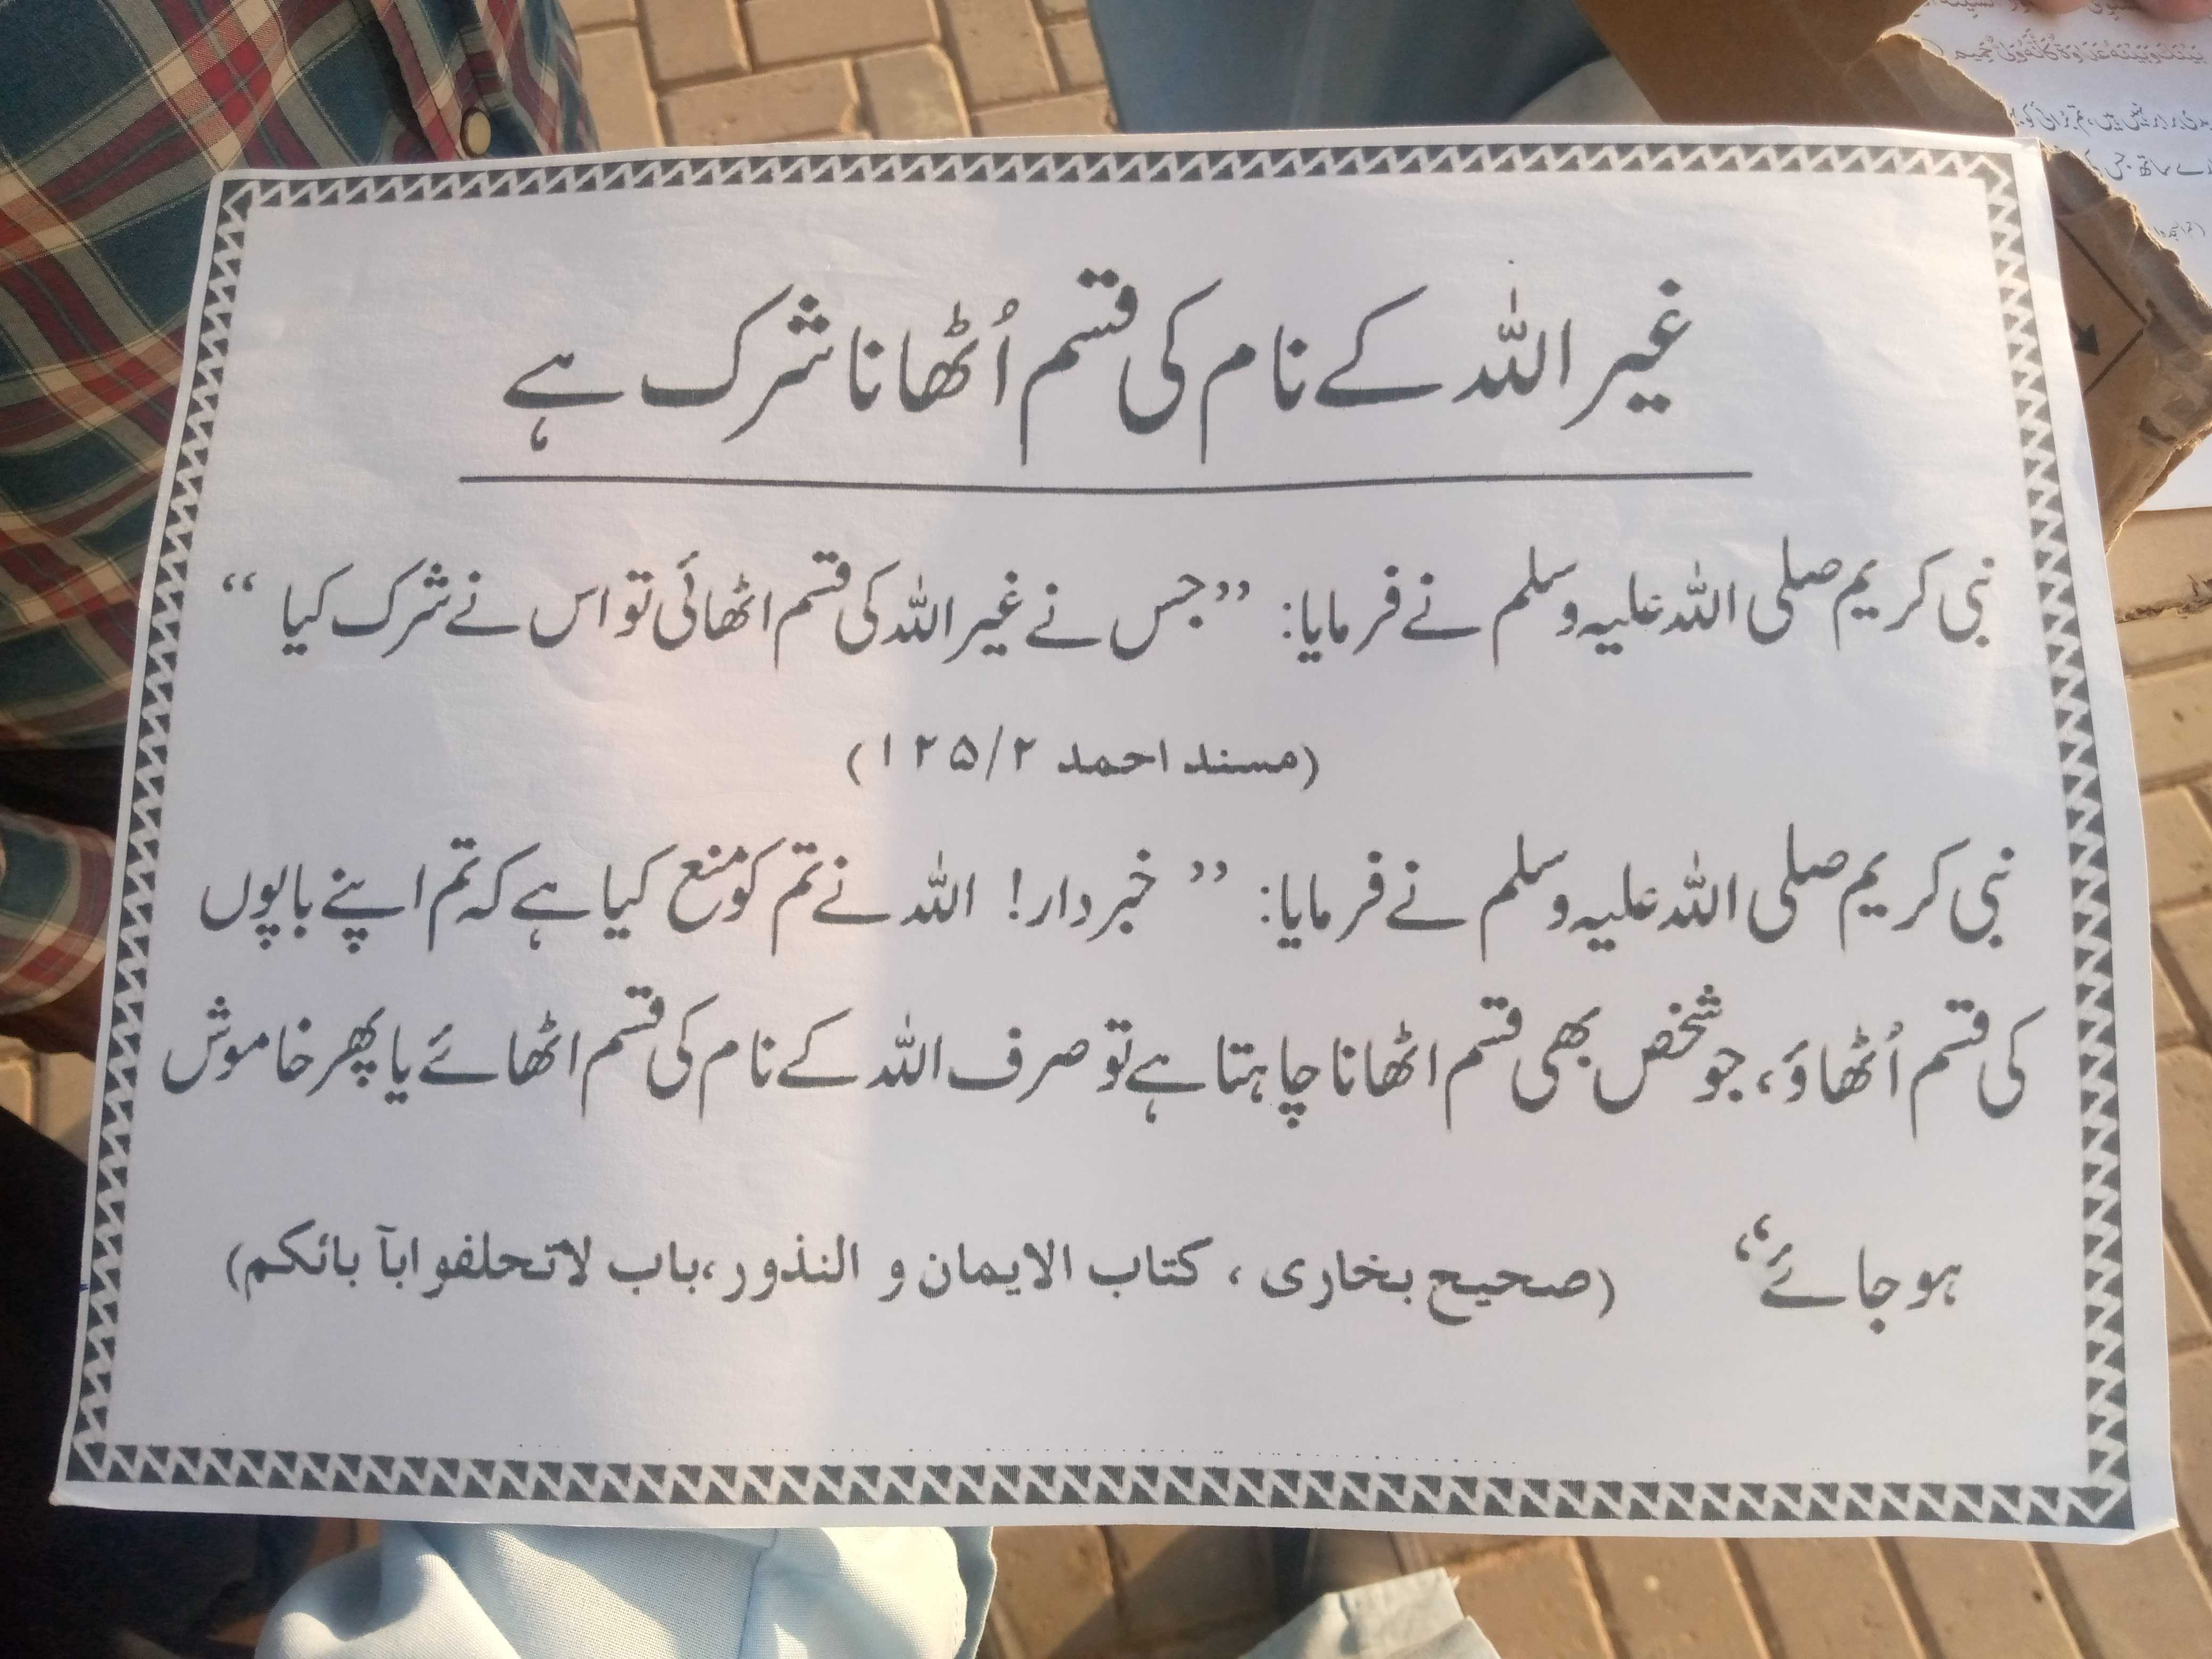 غیر اللہ کے نام کی قسم اُٹھانا شرک ہے
نبی کریم صلی اللہ علیہ وسلم نے فرمایا: ’’جس نے غیر اللہ کی قسم اٹھائی تو اس نے شرک کیا ‘‘
(مسند احمد ۱۲۵/۲)
نبی کریم صلی اللہ علیہ وسلم نے فرمایا: ’’ خبردار! اللہ نے تم کو منع کیا ہے کہ تم اپنے باپوں
کی قسم اُٹھاؤ، جو شخص بھی قسم اٹھانا چاہتا ہے تو صرف اللہ کے نام کی قسم اٹھائے یا پھر خاموش
ہو جائے‘‘ (صحیح بخاری ، کتاب الایمان و النذور،باب لاتحلفو ابآ بائکم)
بینک وبینہ عداوۃ کأنہ ولی حمیم